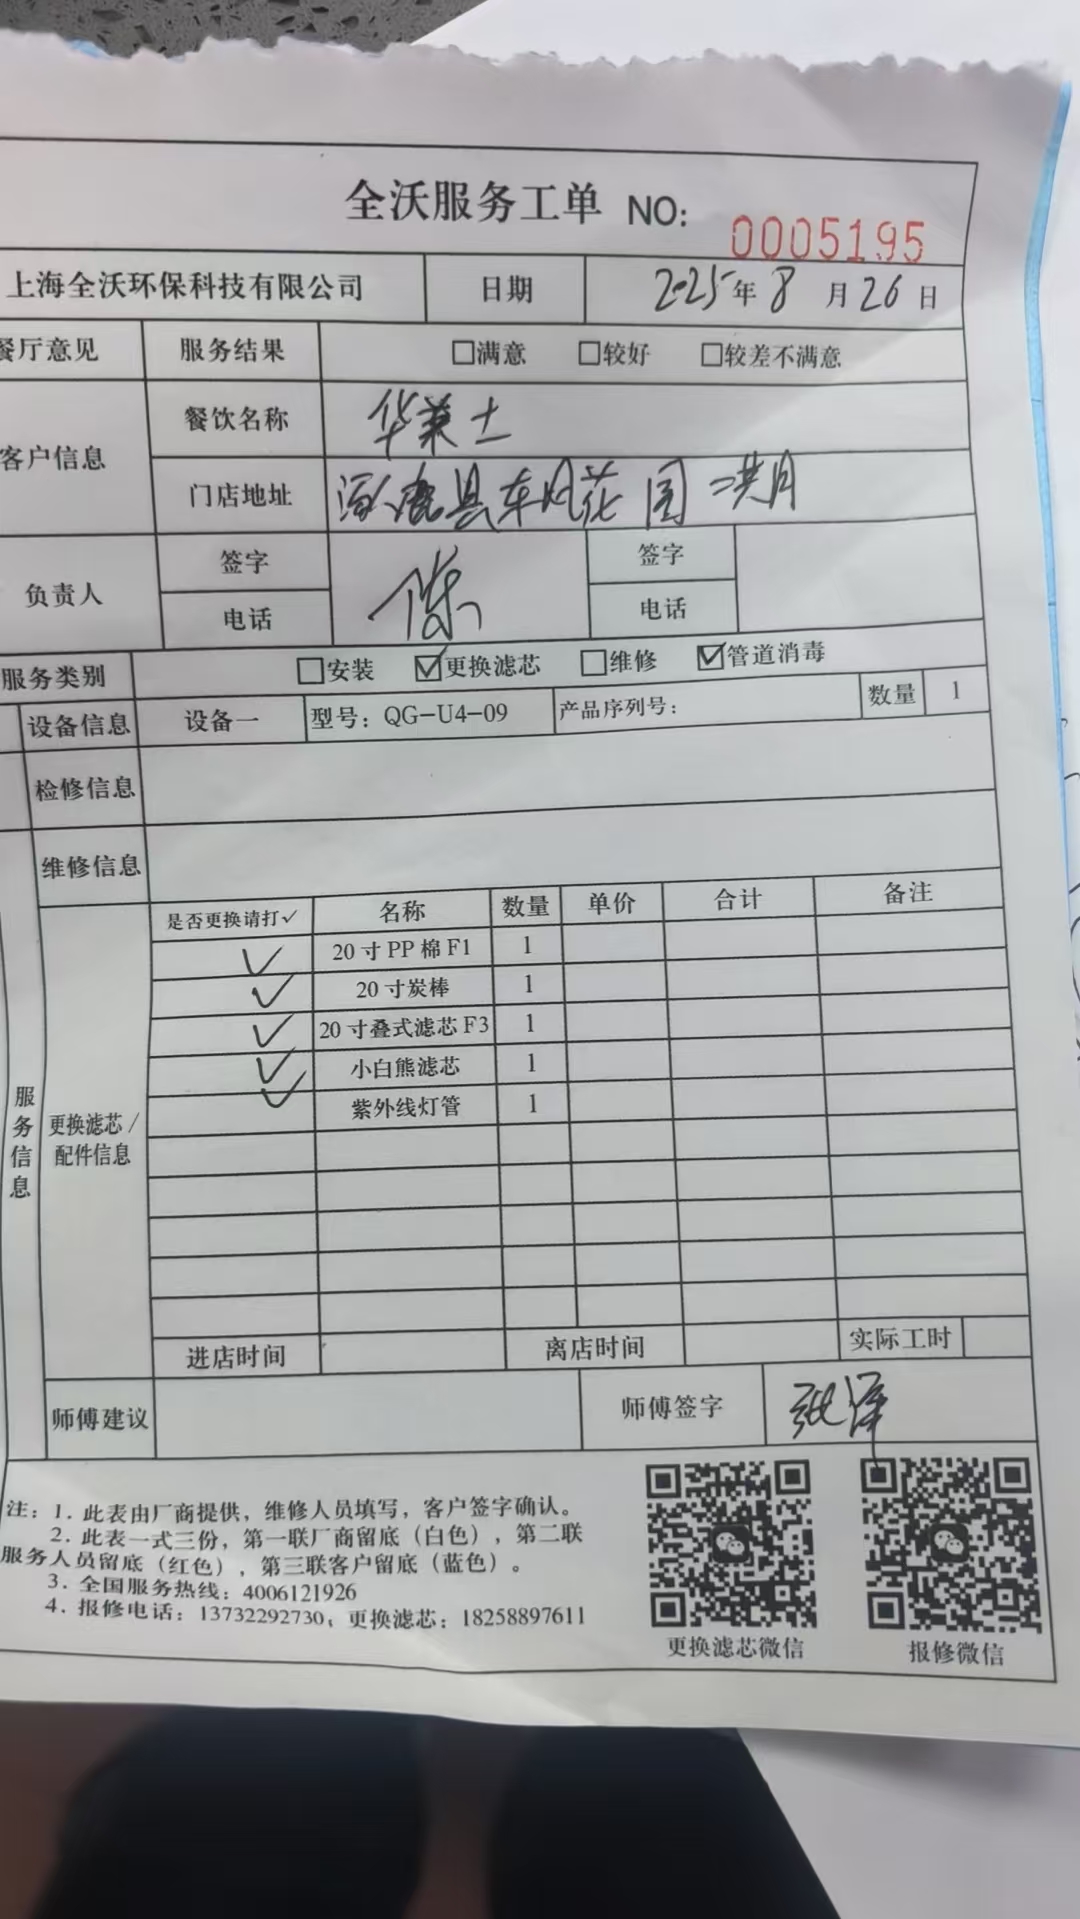 全沃服务工单 NO: 0005195
上海全沃环保科技有限公司 日期 2025年8月26日
餐厅意见 服务结果 □满意 □较好 □较差不满意
客户信息 餐饮名称 华莱士
门店地址 涿鹿县东风花园
负责人 签字 陈 签字
电话 电话
服务类别 □安装 ☑更换滤芯 □维修 ☑管道消毒
设备信息 设备一 型号：QG-U4-09 产品序列号： 数量 1
检修信息
维修信息
服务信息
更换滤芯/
配件信息
是否更换请打✓ 名称 数量 单价 合计 备注
✓ 20寸PP棉F1 1
✓ 20寸炭棒 1
✓ 20寸叠式滤芯F3 1
✓ 小白熊滤芯 1
✓ 紫外线灯管 1
进店时间 离店时间 实际工时
师傅建议 师傅签字 张泽
注：1. 此表由厂商提供，维修人员填写，客户签字确认。
2. 此表一式三份，第一联厂商留底（白色），第二联
服务人员留底（红色），第三联客户留底（蓝色）。
3. 全国服务热线：4006121926
4. 报修电话：13732292730；更换滤芯：18258897611
更换滤芯微信 报修微信